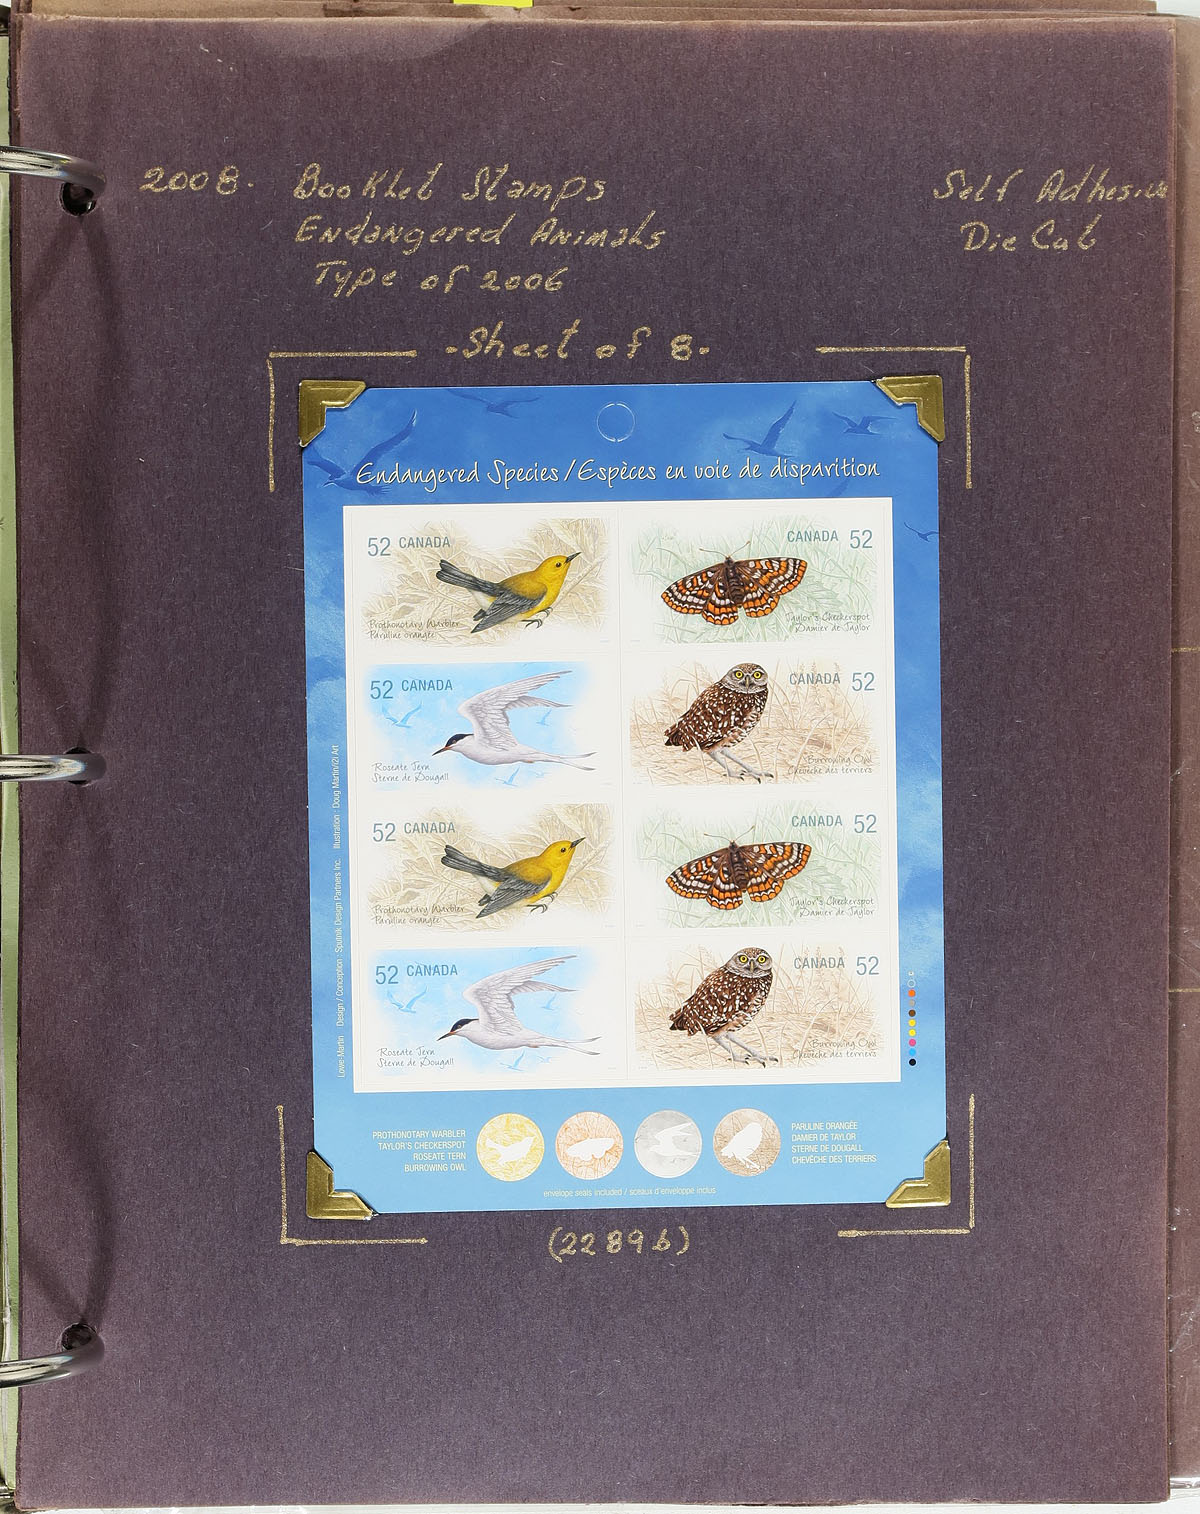 2008. Booklet Stamps
Endangered Animals
Type of 2006
Self Adhesive
Die Cut
-Sheet of 8-
Endangered Species / Espèces en voie de disparition
52 CANADA
Prothonotary Warbler
Paruline orangée
CANADA 52
Taylor's Checkerspot
Damier de Taylor
52 CANADA
Roseate Tern
Sterne de Dougall
CANADA 52
Burrowing Owl
Chevêche des terriers
52 CANADA
Prothonotary Warbler
Paruline orangée
CANADA 52
Taylor's Checkerspot
Damier de Taylor
52 CANADA
Roseate Tern
Sterne de Dougall
CANADA 52
Burrowing Owl
Chevêche des terriers
Lowe-Martin Design / Conception : Sputnik Design Partners Inc. Illustration : Doug Martin/i2i Art
PROTHONOTARY WARBLER
TAYLOR'S CHECKERSPOT
ROSEATE TERN
BURROWING OWL
PARULINE ORANGÉE
DAMIER DE TAYLOR
STERNE DE DOUGALL
CHEVÊCHE DES TERRIERS
envelope seals included / sceaux d'enveloppe inclus
(2289b)